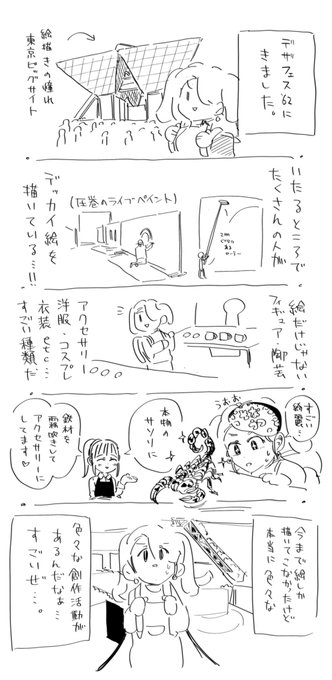 デザフェス62に
きました。
絵描きの憧れ
東京ビッグサイト
いたるところで
たくさんの人が
(圧巻のライブペイント)
デッカイ絵を
描いている…!!
絵だけじゃない。
フィギュア・陶芸
アクセサリー
洋服・コスプレ
衣装etc…
すごい種類だ
うおお
すごい
綺麗…
本物の
サソリに
鉄材を
アクセサリーに
してます♡
今まで絵しか
描いてこなかったけど
本当に色々な
色々な創作活動が
あるんだなぁ…
すごいぜ…。